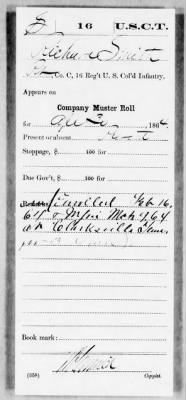 S 16 U.S.C.T.
Richard Smith
Co. C, 16 Reg't U. S. Col'd Infantry.
Appears on
Company Muster Roll
for , 1864.
Present or absent
Stoppage, $ 100 for
Due Gov't, $ 100 for
Remarks: Enrolled Feb 16,
64 & M/in Mch 9, 64
at Clarksville Tenn
Book mark:
(358) Copyist.